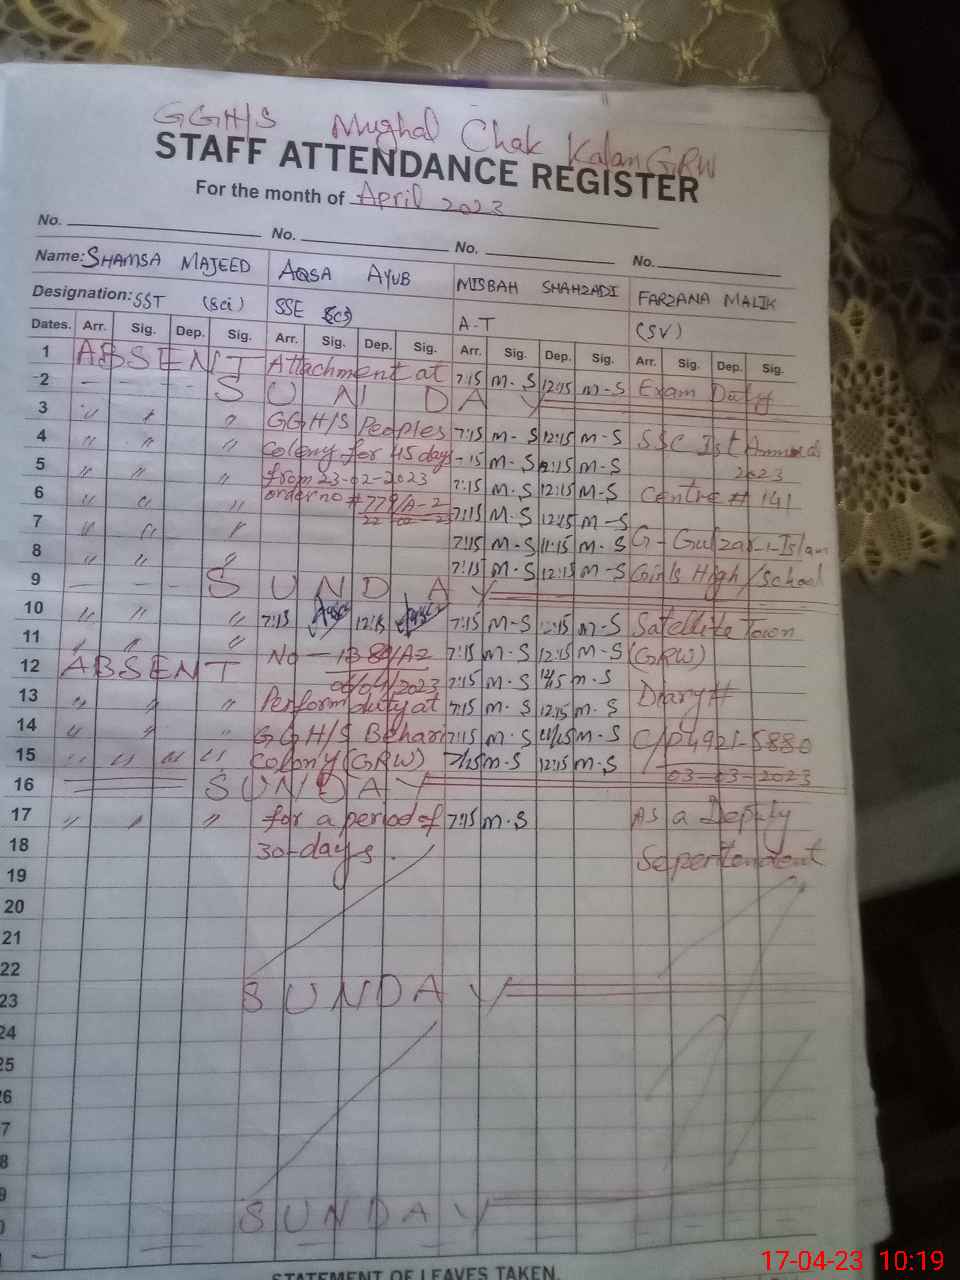 GGH/S Mughal Chak Kalan GRW
STAFF ATTENDANCE REGISTER
For the month of April 2023
No. No. No. No.
Name: SHAMSA MAJEED AQSA AYUB MISBAH SHAHZADI FARZANA MALIK
Designation: SST (Sci) SSE (CS) A-T (SV)
Dates. Arr. Sig. Dep. Sig. Arr. Sig. Dep. Sig. Arr. Sig. Dep. Sig. Arr. Sig. Dep. Sig.
1 ABSENT Attachment at 7:15 M-S 12:15 M-S Exam Duty
2 SUNDAY
3 " " " GGH/S Peoples 7:15 M-S 12:15 M-S SSC 1st Annual
4 " " " Colony for 45 days -15 M-S 12:15 M-S 2023
5 " " " from 23-02-2023 7:15 M-S 12:15 M-S Centre # 141
6 " " " order no # 779/A-2 7:15 M-S 12:15 M-S
22 02 23
7 " " " 7:15 M-S 11:15 M-S G-Gulzar-i-Islam
8 " " " 7:15 M-S 12:15 M-S Girls High/School
9 SUNDAY
10 " " " 7:15 12:15 7:15 M-S 12:15 M-S Satellite Town
11 " " " No - 1380/A2 7:15 M-S 12:15 M-S (GRW)
12 ABSENT 06/04/2023 7:15 M-S 12:15 M-S Diary #
13 " " " Perform duty at 7:15 M-S 12:15 M-S
14 " " " GGH/S Behari 7:15 M-S 11:15 M-S C/P4921-5880
15 " " " " Colony (GRW) 7:15 M-S 12:15 M-S 03-03-2023
16 SUNDAY
17 " " " for a period of 7:15 M-S As a Deputy
18 30-days. Sepertendent
19
20
21
22
23 SUNDAY
24
25
6
7
8
9
0 SUNDAY
STATEMENT OF LEAVES TAKEN
17-04-23 10:19